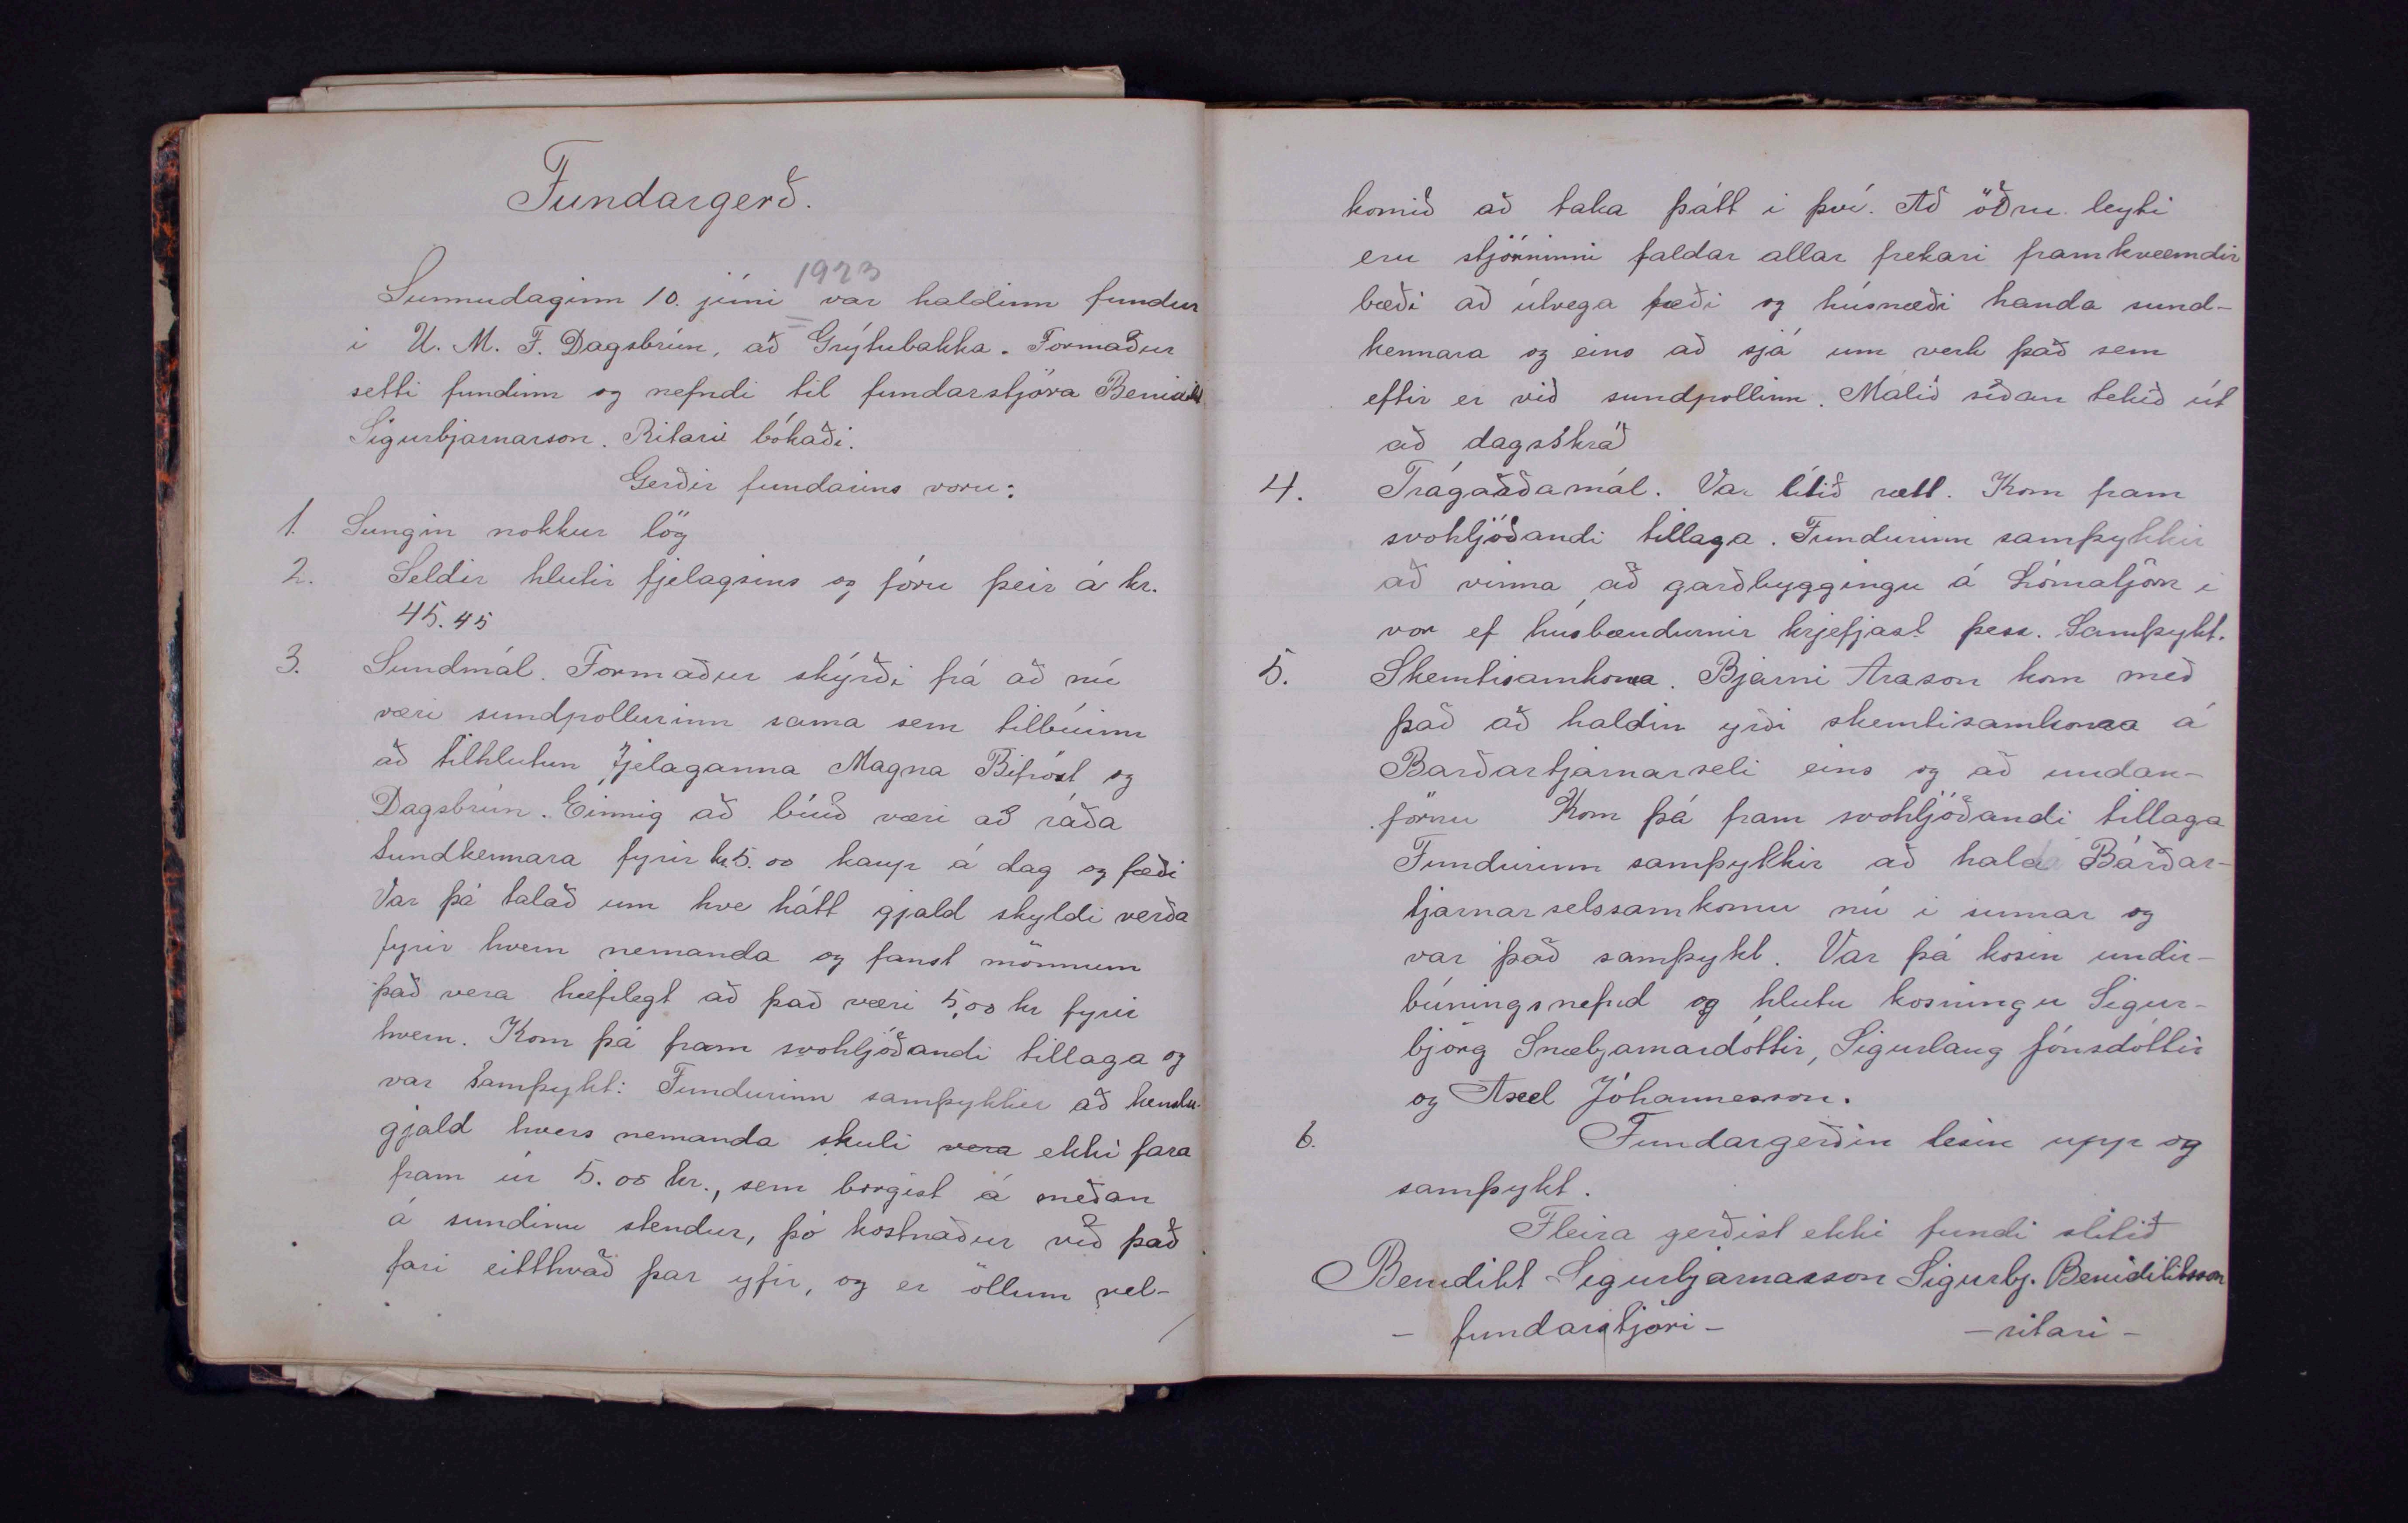 Fundargerð.
1923
Sunnudaginn 10. júni var haldinn fundur
i U. M. F. Dagsbrún, að Grýtubakka. Formaður
setti fundinn og nefndi til fundarstjóra Benidikt
Sigurbjarnarson. Ritari bókaði.
Gerðir fundarins voru:
1. Sungin nokkur lög
2. Seldir hlutir fjelagsins og fóru þeir á kr.
45.45
3. Sundmál. Formaður skýrði frá að nú
væri sundpollurinn sama sem tilbúinn
að tilhlutun fjelaganna Magna Bifröst og
Dagsbrún. Einnig að búið væri að ráða
sundkennara fyrir kr 5.00 kaup á dag og fæði
Var þá talað um hve hátt gjald skyldi verða
fyrir hvern nemanda og fanst mönnum
það vera hæfilegt að það væri 5,00 kr fyrir
hvern. Kom þá fram svohljóðandi tillaga og
var samþykt: Fundurinn samþykkir að kenslu-
gjald hvers nemanda skuli vera ekki fara
fram úr 5.00 kr., sem borgist á meðan
á sundinu stendur, þó kostnaður við það
fari eitthvað þar yfir, og er öllum vel-
komið að taka þátt i því. Að öðru leyti
eru stjórninni faldar allar frekari framkvæmdir
bæði að útvega fæði og húsnæði handa sund-
kennara og eins að sjá um verk það sem
eftir er við sundpollinn. Málið síðan tekið út
að dagsskrá
4. Trágarðamál. Var litið rætt. Kom fram
svohljóðandi tillaga. Fundurinn samþykkir
að vinna að garðbyggingu á Lómatjörn i
vor ef húsbændurnir krjefjast þess. Samþykt.
5. Skemtisamkoma. Bjarni Arason kom með
það að haldin yrði skemtisamkoma á
Barðartjarnarseli eins og að undan-
förnu Kom þá fram svohljóðandi tillaga
Fundurinn samþykkir að halda Bárðar-
tjarnarselssamkomu nú i sumar og
var það samþykt. Var þá kosin undir-
búningsnefnd og hlutu kosningu Sigur-
björg Snæbjarnardóttir, Sigurlaug Jónsdóttir
og Axel Jóhannesson.
6. Fundargerðin lesin upp og
samþykt.
Fleira gerðist ekki fundi slitið
Benidikt Sigurbjarnarson Sigurbj. Benidiktsson
- fundarstjóri - - ritari -